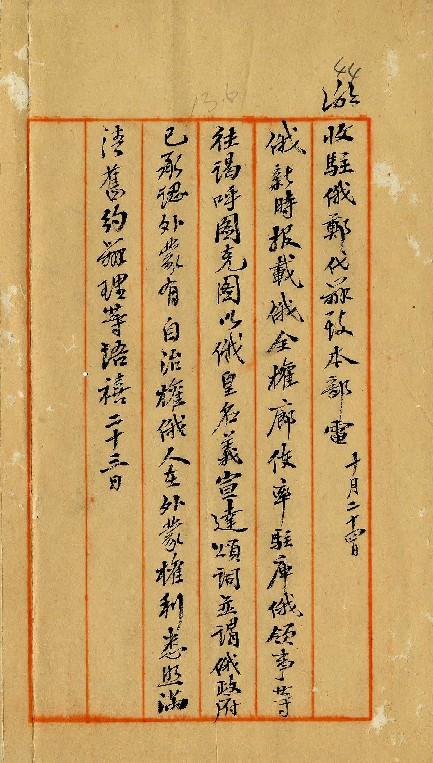 44
136
收駐俄鄭代辦致本部電 十月二十四日
俄新時報載俄全權廊使率駐庫俄領事等
往謁呼圖克圖以俄皇名義宣達頌詞並謂俄政府
已承認外蒙有自治權俄人在外蒙權利悉照滿
清舊約辦理等語禧二十三日